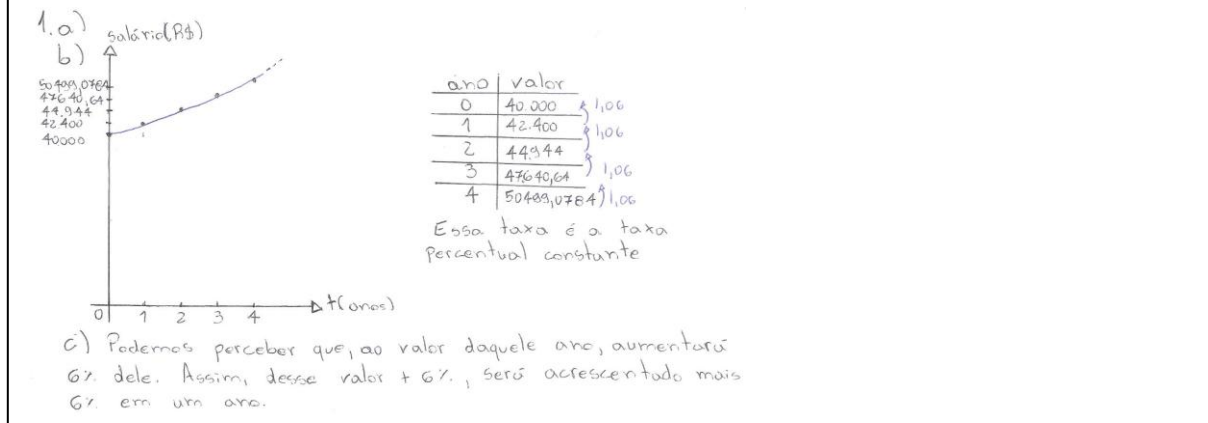 1.a) salário(R$)
b)
50499,0784
47640,64
44.944
42.400
40000
0 1 2 3 4 t(anos)
ano valor
0 40.000 1,06
1 42.400 1,06
2 44.944
3 47.640,64 1,06
4 50499,0784 1,06
Essa taxa é a taxa
percentual constante
c) Podemos perceber que, ao valor daquele ano, aumentará
6% dele. Assim, desse valor + 6%, será acrescentado mais
6% em um ano.